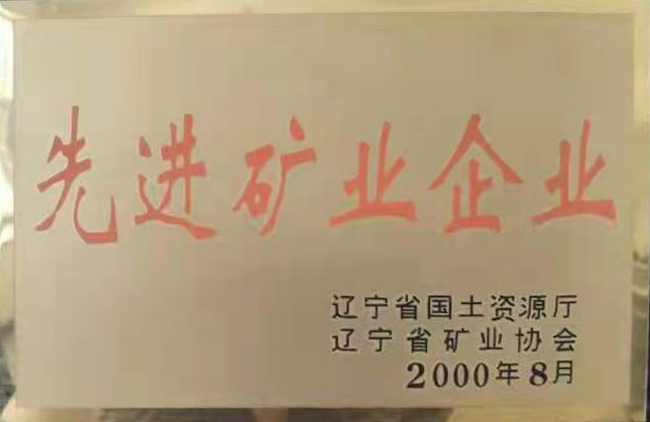 先进矿业企业
辽宁省国土资源厅
辽宁省矿业协会
2000年8月